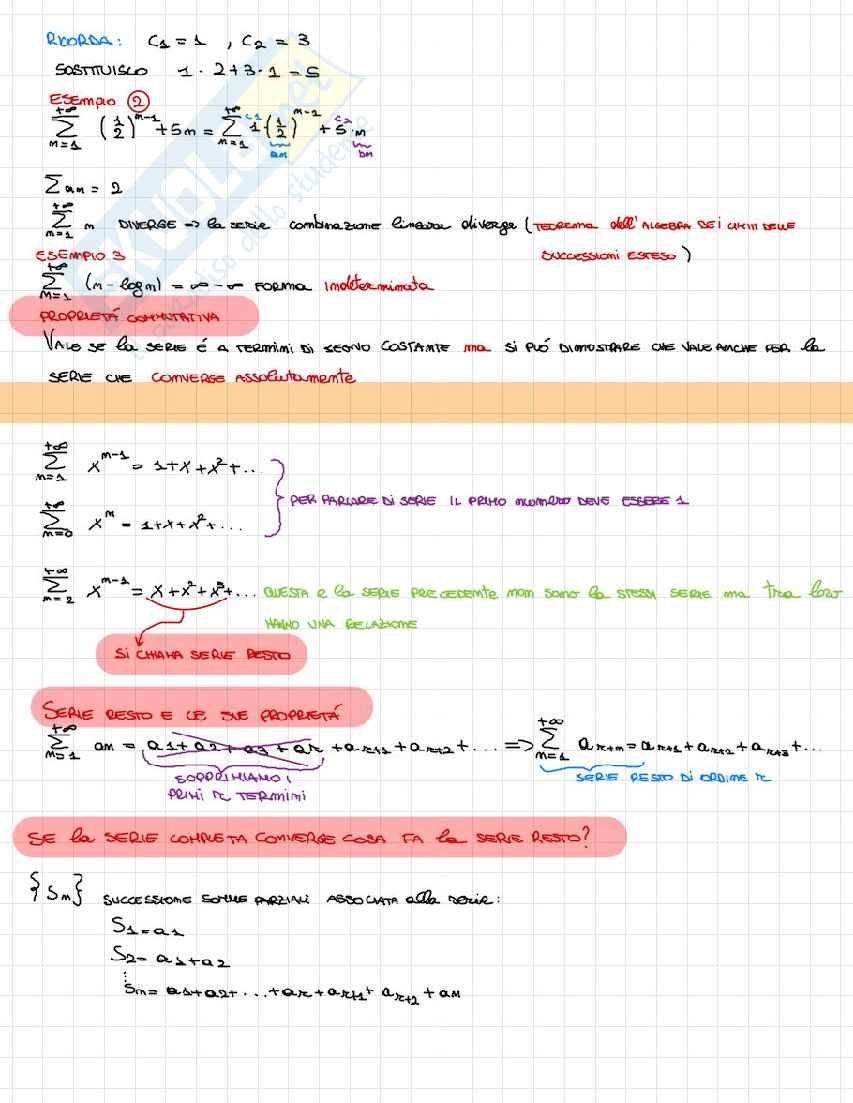 RICORDA: C1 = 1 , C2 = 3
SOSTITUISCO 1 · 2 + 3 · 1 = 5
ESEMPIO 2
+∞ ∑ n=1 (1/2)^n-1 + 5n = +∞ ∑ n=1 1·(1/2)^n-1 + 5·n
C1 C2
an bn
∑ an = 2
+∞ ∑ n=1 n DIVERGE => la serie combinazione lineare diverge (TEOREMA dell'ALGEBRA DEI LIMITI DELLE
SUCCESSIONI ESTESO)
ESEMPIO 3
+∞ ∑ n=1 (n - logn) = ∞ - ∞ FORMA Indeterminata
PROPRIETÁ COMMUTATIVA
VALE SE la SERIE É A TERMINI DI SEGNO COSTANTE ma SI PUÓ DIMOSTRARE CHE VALE ANCHE PER la
SERIE CHE CONVERGE ASSOlutamente
+∞ ∑ n=1 x^n-1 = 1+x+x²+...
PER PARLARE DI SERIE IL PRIMO numero DEVE ESSERE 1
+∞ ∑ n=0 x^n = 1+x+x²+...
+∞ ∑ n=2 x^n-1 = x+x²+x³+... QUESTA e la SERIE PRECEDENTE non sono la STESSA SERIE ma tra loro
HANNO UNA RELAZIONE
SI CHIAMA SERIE RESTO
SERIE RESTO E LE SUE PROPRIETÁ
+∞ ∑ n=1 an = a1+a2+a3+ar+ar+1+ar+2+... => +∞ ∑ n=1 ar+n = ar+1+ar+2+ar+3+...
SOPPRIMIAMO i
PRIMI r TERMINI
SERIE RESTO DI ORDINE r
SE la SERIE COMPLETA CONVERGE COSA FA la SERIE RESTO?
{Sn} SUCCESSIONE SOMME PARZIALI ASSOCIATA alla serie:
S1 = a1
S2 = a1+a2
⋮
Sn = a1+a2+...+ar+ar+1+ar+2+an
SKUOLA.net
il paradiso dello studente